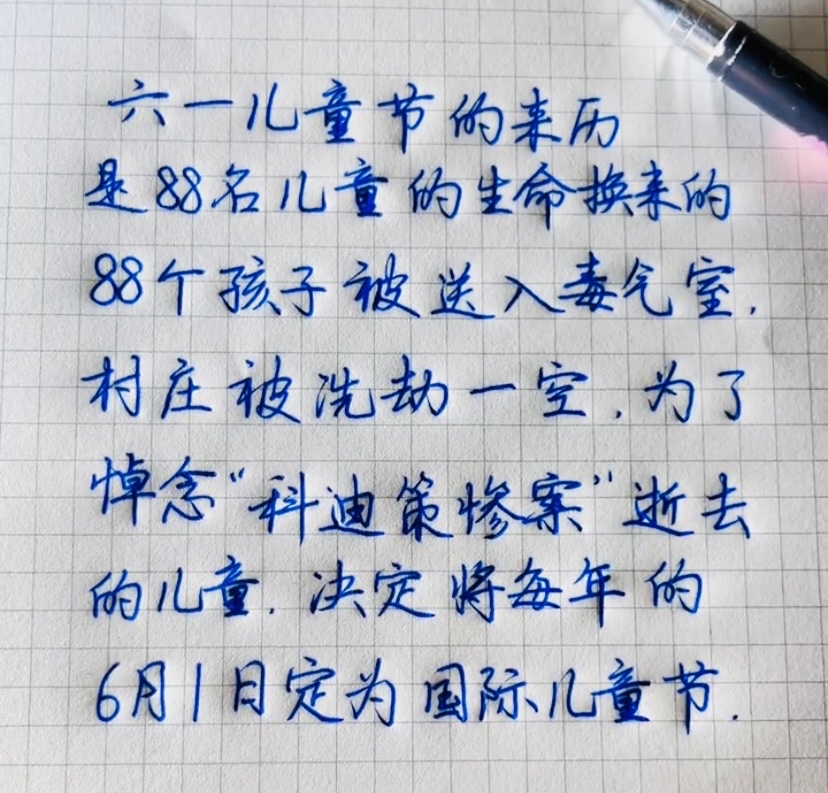 六一儿童节的来历
是88名儿童的生命换来的
88个孩子被送入毒气室.
村庄被洗劫一空.为了
悼念“科迪策惨案”逝去
的儿童.决定将每年的
6月1日定为国际儿童节.